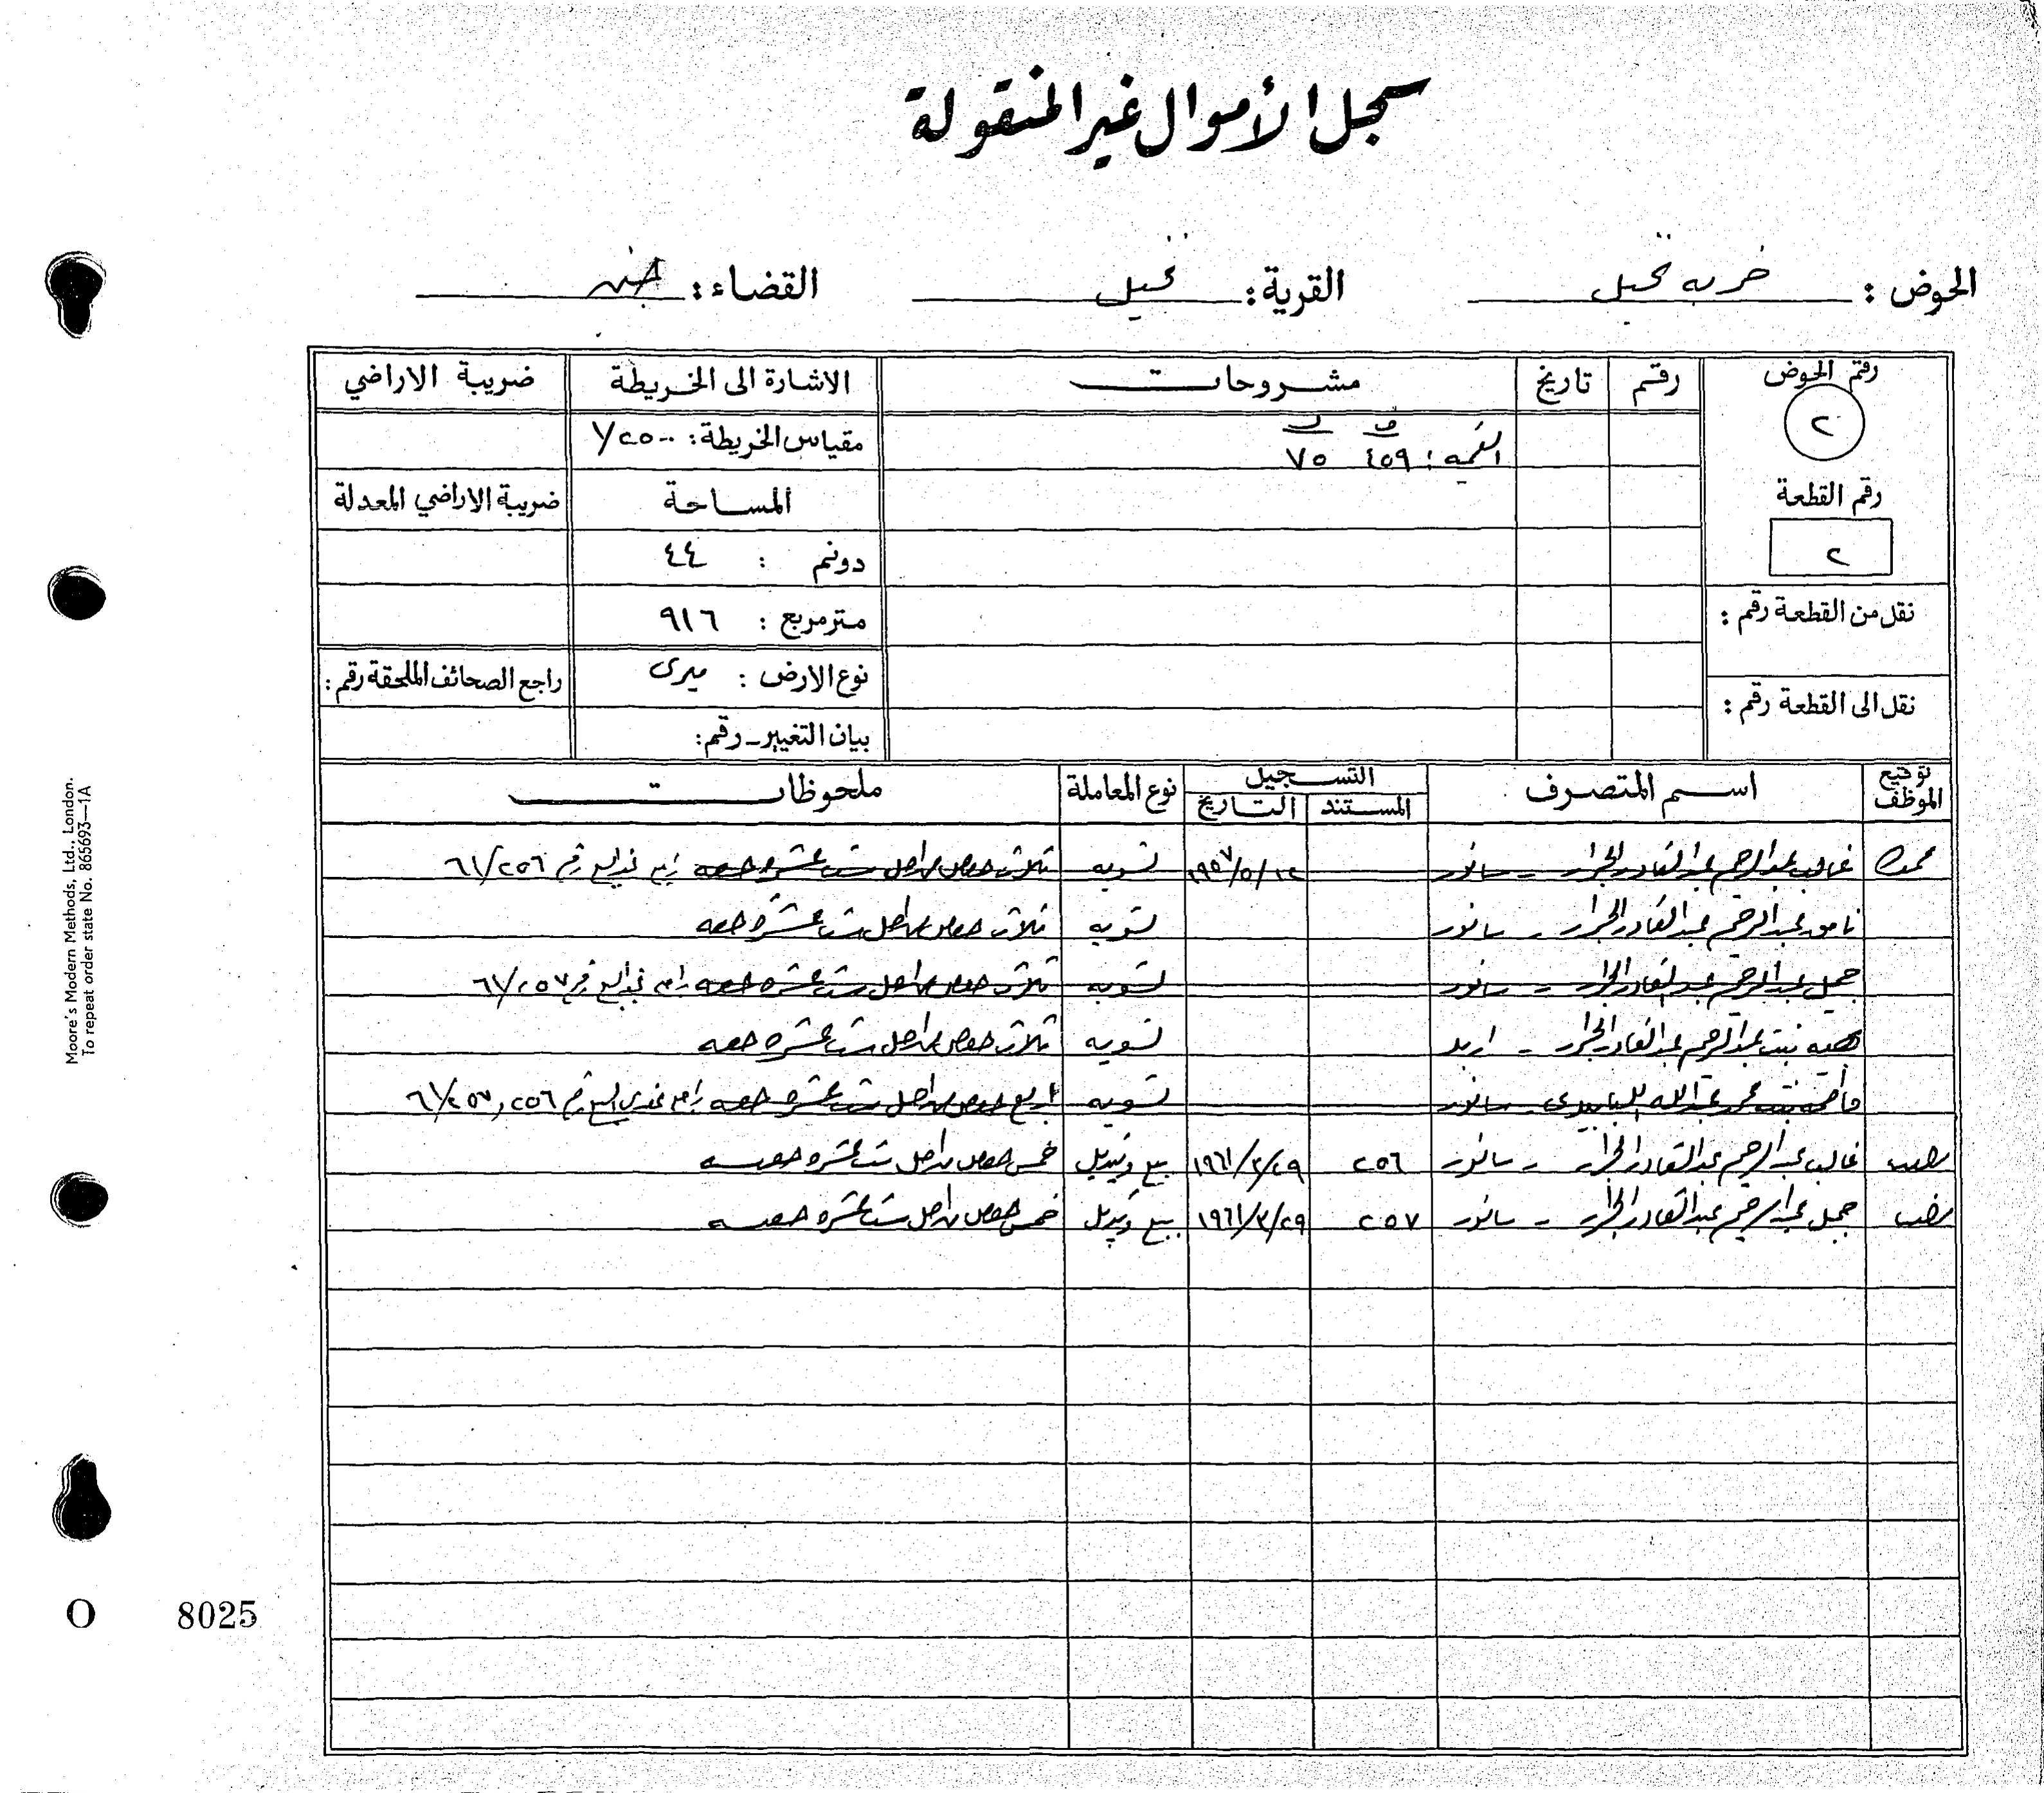 سجل الأموال غير المنقولة
الحوض : خربه نخيل القرية: نخيل القضاء: جنين
رقم الحوض رقم تاريخ مشروحات الاشارة الى الخريطة ضريبة الاراضي
٢
القيمه : ٤٥٩ ٧٥
مقياس الخريطة: ١/٢٥٠٠
رقم القطعة
٢
المساحة ضريبة الاراضي المعدلة
دونم : ٤٤
نقل من القطعة رقم :
متر مربع : ٩١٦
نوع الارض : ميرى راجع الصحائف الملحقة رقم :
نقل الى القطعة رقم :
بيان التغيير - رقم:
توقيع الموظف اسم المتصرف التسجيل نوع المعاملة ملحوظات
المستند التاريخ
غالب عبد الرحيم عبد القادر الجرار - سانور ١٩٥٧/٥/١٢ تسويه ثلاث حصص من اصل ست عشره حصه راجع عقد البيع رقم ٦١/٢٥٦
عبد الرحيم عبد القادر الجرار - سانور تسويه ثلاث حصص من اصل ست عشره حصه
جميل عبد الرحيم عبد القادر الجرار - سانور تسويه ثلاث حصص من اصل ست عشره حصه راجع عقد البيع رقم ٦١/٢٥٧
بنت عبد الرحيم عبد القادر الجرار - اربد تسويه ثلاث حصص من اصل ست عشره حصه
فاطمه بنت محمد عبد الله - سانور تسويه اربع حصص من اصل ست عشره حصه راجع عقدي البيع رقم ٢٥٦ و ٦١/٢٥٧
غالب عبد الرحيم عبد القادر الجرار - سانور ٢٥٦ ١٩٦١/٣/٢٩ بيع وتبديل خمس حصص من اصل ست عشره حصه
جميل عبد الرحيم عبد القادر الجرار - سانور ٢٥٧ ١٩٦١/٣/٢٩ بيع وتبديل خمس حصص من اصل ست عشره حصه
Moore's Modern Methods, Ltd., London.
To repeat order state No. 865693—1A
O 8025